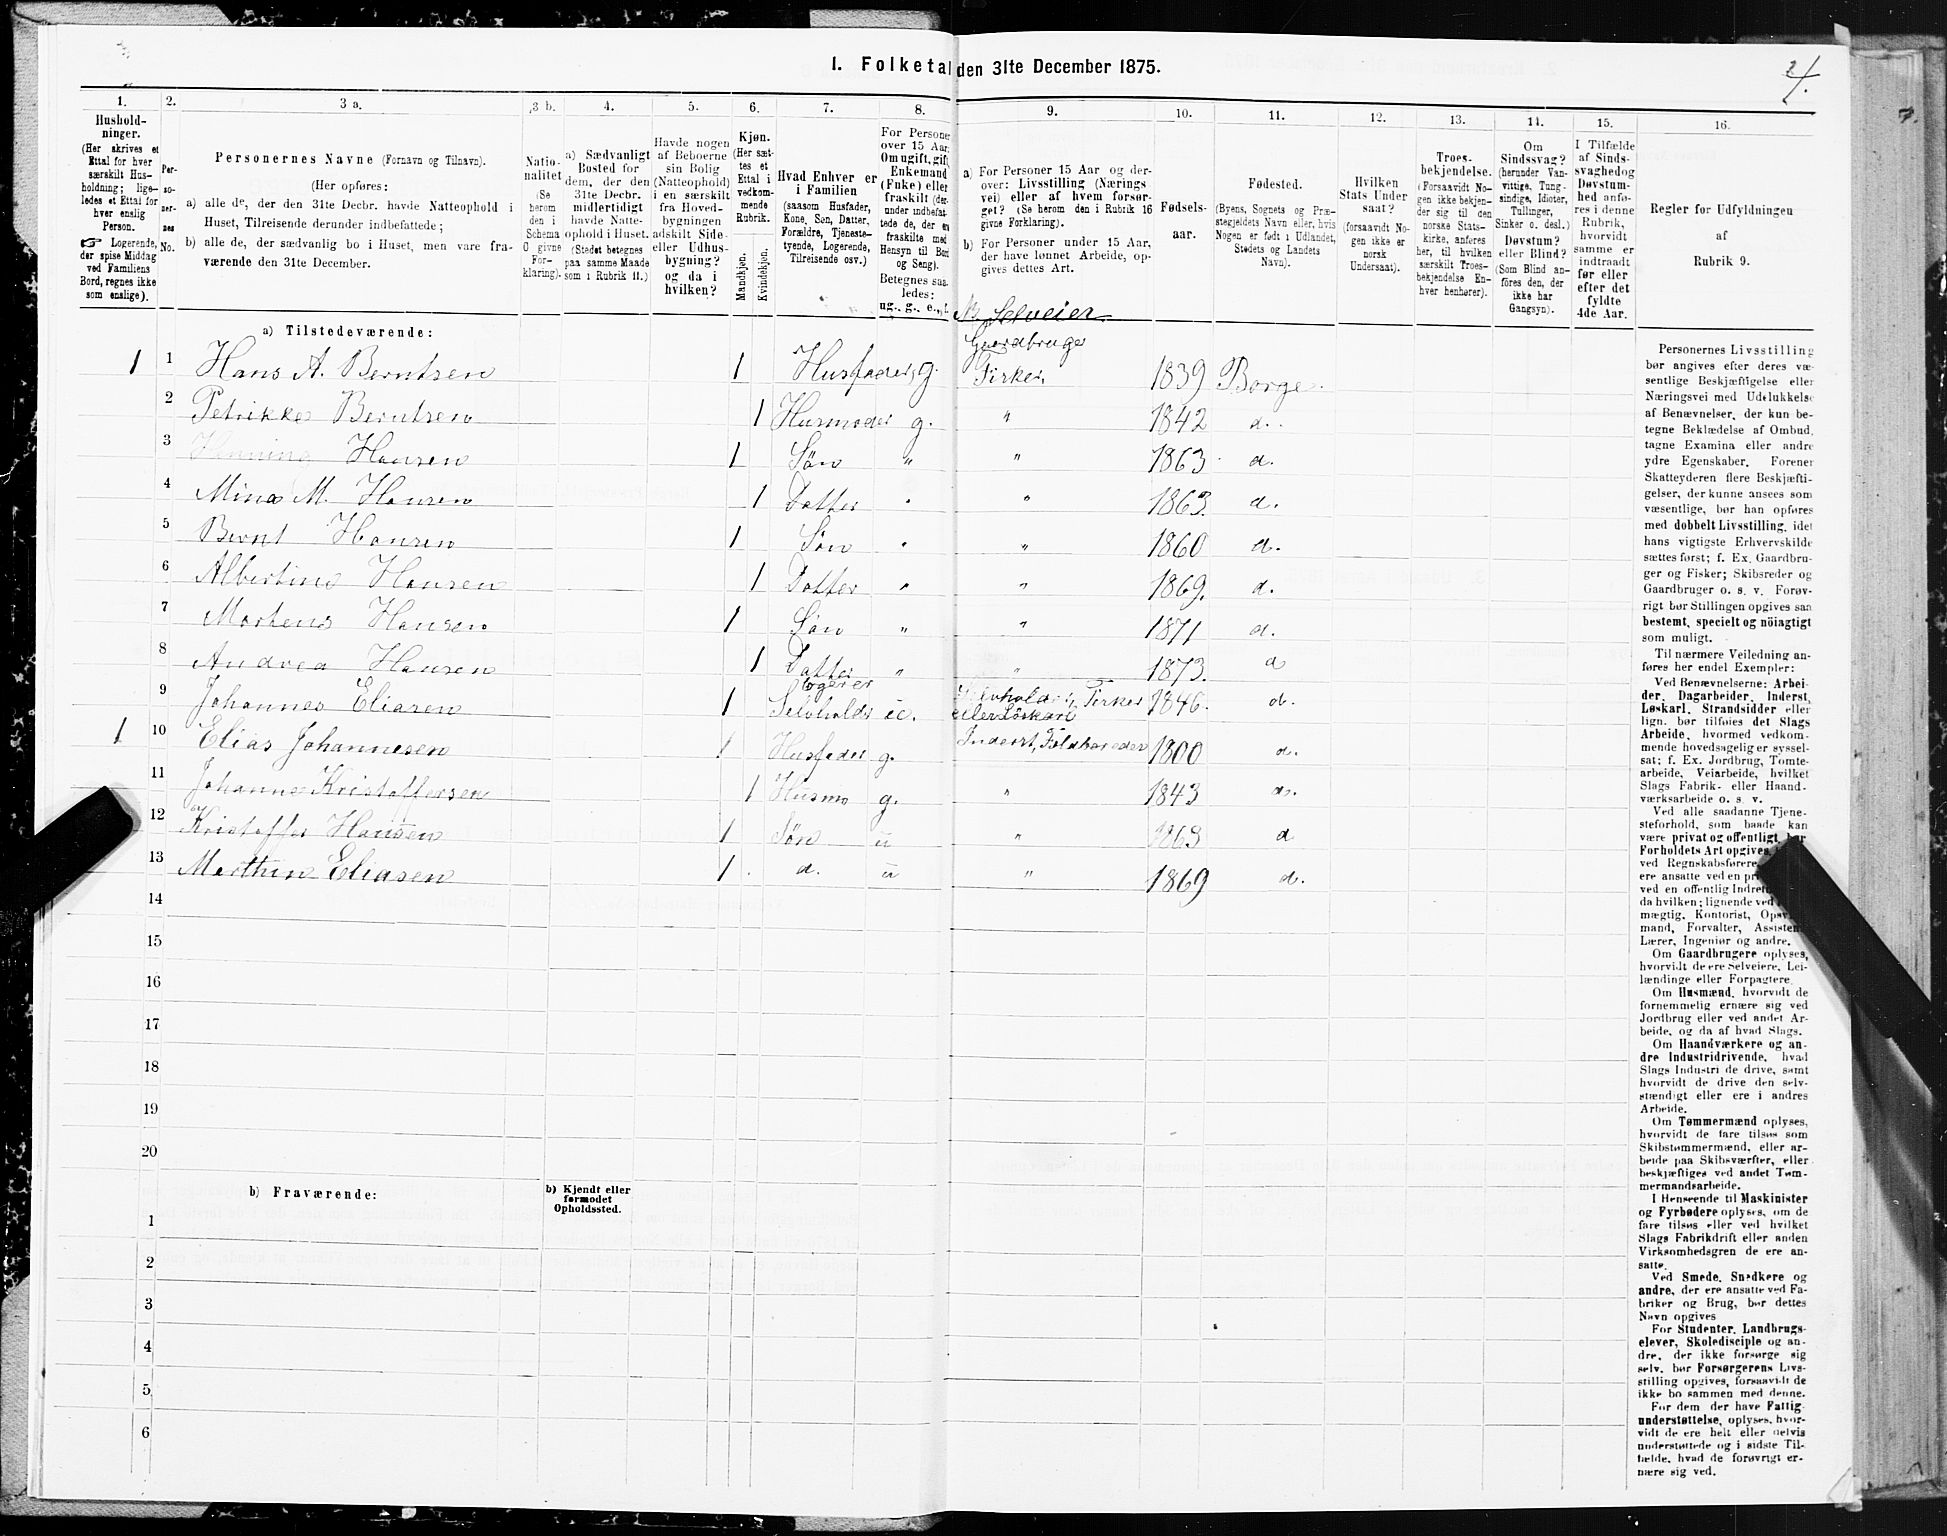 1. Folketal den 31te December 1875.
4.
1. 2. 3 a. 3 b. 4. 5. 6. 7. 8. 9. 10. 11. 12. 13. 14. 15. 16.
Hushold-
ninger.
(Her skrives et
Ettal for hver
særskilt Hus-
holdning; lige-
ledes et Ettal for
hver enslig
Person.
☞ Logerende,
der spise Middag
ved Familiens
Bord, regnes ikke
som enslige).
Per-
so-
ner-
nes
No.
Personernes Navne (Fornavn og Tilnavn).
(Her opføres:
a) alle de, der den 31te Decbr. havde Natteophold i
Huset, Tilreisende derunder indbefattede;
b) alle de, der sædvanlig bo i Huset, men vare fra-
værende den 31te December.
Natio-
nalitet
(Se
herom
den i
Schema
O givne
For-
klaring).
a) Sædvanligt
Bosted for
dem, der den
31te Decbr.
midlertidigt
havde Natte-
ophold i Huset.
(Stedet betegnes
paa samme Maade
som i Rubrik 11.)
Havde nogen
af Beboerne
sin Bolig
(Natteophold)
i en særskilt
fra Hoved-
bygningen
adskilt Side-
eller Udhus-
bygning?
og da i
hvilken?
Kjøn.
(Her sæt-
tes et
Ettal i
vedkom-
mende
Rubrik.
Mandkjøn.
Kvindekjøn.
Hvad Enhver er
i Familien
(saasom Husfader,
Kone, Søn, Datter,
Forældre, Tjeneste-
tyende, Logerende,
Tilreisende osv.)
For Personer
over 15 Aar:
Om ugift, gift,
Enkemand
(Enke) eller
fraskilt (der-
under indbefat-
tede de, der ere
fraskilte med
Hensyn til Bord
og Seng).
Betegnes saa-
ledes:
ug., g., e., f.
a) For Personer 15 Aar og der-
over: Livsstilling (Nærings-
vei) eller af hvem forsør-
get? (Se herom den i Rubrik 16
givne Forklaring).
b) For Personer under 15 Aar,
der have lønnet Arbeide, op-
gives dettes Art.
Fødsels-
aar.
Fødested.
(Byens, Sognets og Præ-
stegjeldets Navn eller, hvis
Nogen er født i Udlandet,
Stedets og Landets
Navn).
Hvilken
Stats Under-
saat?
(forsaavidt No-
gen ikke er
norsk
Undersaat).
Troes-
bekjendelse.
(Forsaavidt No-
gen ikke bekjen-
der sig til den
norske Stats-
kirke, anføres
her, til hvilken
særskilt Troes-
bekjendelse En-
hver henhører).
Om
Sindssvag?
(herunder Van-
vittige, Tung-
sindige, Idioter,
Tullinger,
Sinker o. desl.)
Døvstum?
eller Blind?
(Som Blind an-
føres den, der
ikke har
Gangsyn).
I Tilfælde
af Sinds-
svaghed og
Døvstum-
hed anfø-
res i denne
Rubrik,
hvorvidt
samme er
indtraadt
før eller
efter det
fyldte
4de Aar.
Regler for Udfyldningen
af
Rubrik 9.
a) Tilstedeværende:
Selveier
Gaardbruger
1 1 Hans A. Berntsen 1 Husfader g. Fisker, 1839 Borge.
2 Petrikke Berntsen 1 Husmoder g. " 1842 d.
3 Henning Hansen 1 Søn " " 1863 d.
4 Mina M. Hansen 1 Datter " " 1863. d.
5 Bernt Hansen 1 Søn " " 1860 d.
6 Albertine Hansen 1 Datter " " 1869. d.
7 Martens Hansen 1 Søn " " 1871 d.
8 Andrea Hansen 1 Datter " " 1873. d
9 Johannes Eliasen 1 logerer Selvholds Fisker 1846. d.
1 10 Elias Johannesen 1 Husfader g. Inderst, 1800 d.
11 Johanna Kristoffersen 1 Husmo g. " 1843 d.
12 Kristoffer Hansen 1 Søn u " 1863 d
13 Marthin Eliasen 1 d. u " 1869 d.
14
15
16
17
18
19
20
b) Fraværende:
b) Kjendt eller
formodet
Opholdssted.
1
2
3
4
5
6
Personernes Livsstilling
bør angives efter deres væ-
sentlige Beskjæftigelse eller
Næringsvei med Udelukkelse
af Benævnelser, der kun be-
tegne Beklædelse af Ombud,
tagne Examina eller andre
ydre Egenskaber. Forener
Skatteyderen flere Beskjæfti-
gelser, der kunne ansees som
væsentlige, bør han opføres
med dobbelt Livsstilling, idet
hans vigtigste Erhvervskilde
sættes først; f. Ex. Gaardbru-
ger og Fisker; Skibsreder og
Gaardbruger o. s. v. Forøv-
rigt bør Stillingen opgives saa
bestemt, specielt og nöiagtigt
som muligt.
Til nærmere Veiledning an-
føres her endel Exempler:
Ved Benævnelserne: Arbei-
der, Dagarbeider, Inderst,
Løskarl, Strandsidder eller
lign. bør tilføies det Slags
Arbeide, hvormed vedkom-
mende hovedsagelig er syssel-
sat; f. Ex. Jordbrug, Tomte-
arbeide, Veiarbeide, hvilket
Slags Fabrik- eller Haand-
værksarbeide o. s. v.
Ved alle saadanne Tjene-
steforhold, som baade kan
være privat og offentligt, bør
Forholdets Art opgives,
ved Regnskabsførere,
ere ansatte ved en
ved en offentlig
da hvilken; lignende ved
mægtig, Kontorist,
mand, Forvalter,
Lærer, Ingeniør og andre.
Om Gaardbrugere oplyses,
hvorvidt de ere Selveiere, Lei-
lændinge eller Forpagtere.
Om Husmænd, hvorvidt de
fornemmelig ernære sig ved
Jordbrug eller ved andet Ar-
beide, og da af hvad Slags.
Om Haandværkere og an-
dre Industridrivende, hvad
Slags Industri de drive, samt
hvorvidt de drive den selv-
stændigt eller ere i andres
Arbeide.
Om Tømmermænd oplyses,
hvorvidt de fare tilsøs som
Skibstømmermænd, eller ar-
beide paa Skibsværfter, eller
beskjæftiges ved andet Tøm-
mermandsarbeide.
I Henseende til Maskinister
og Fyrbødere oplyses, om de
fare tilsøs eller ved hvilket
Slags Fabrikdrift eller anden
Virksomhedsgren de ere an-
satte.
Ved Smede, Snedkere og
andre, der ere ansatte ved Fa-
briker og Brug, bør dettes
Navn opgives
For Studenter, Landbrugs-
elever, Skoledisciple og an-
dre, der ikke forsørge sig
selv, bør Forsørgerens Livs-
stilling opgives, forsaavidt de
ikke bo sammen med denne.
For dem, der have Fattig-
understøttelse, oplyses, hvor-
vidt de ere helt eller delvis
understøttede og i sidste Til-
fælde, hvad de forøvrigt er-
nære sig ved.